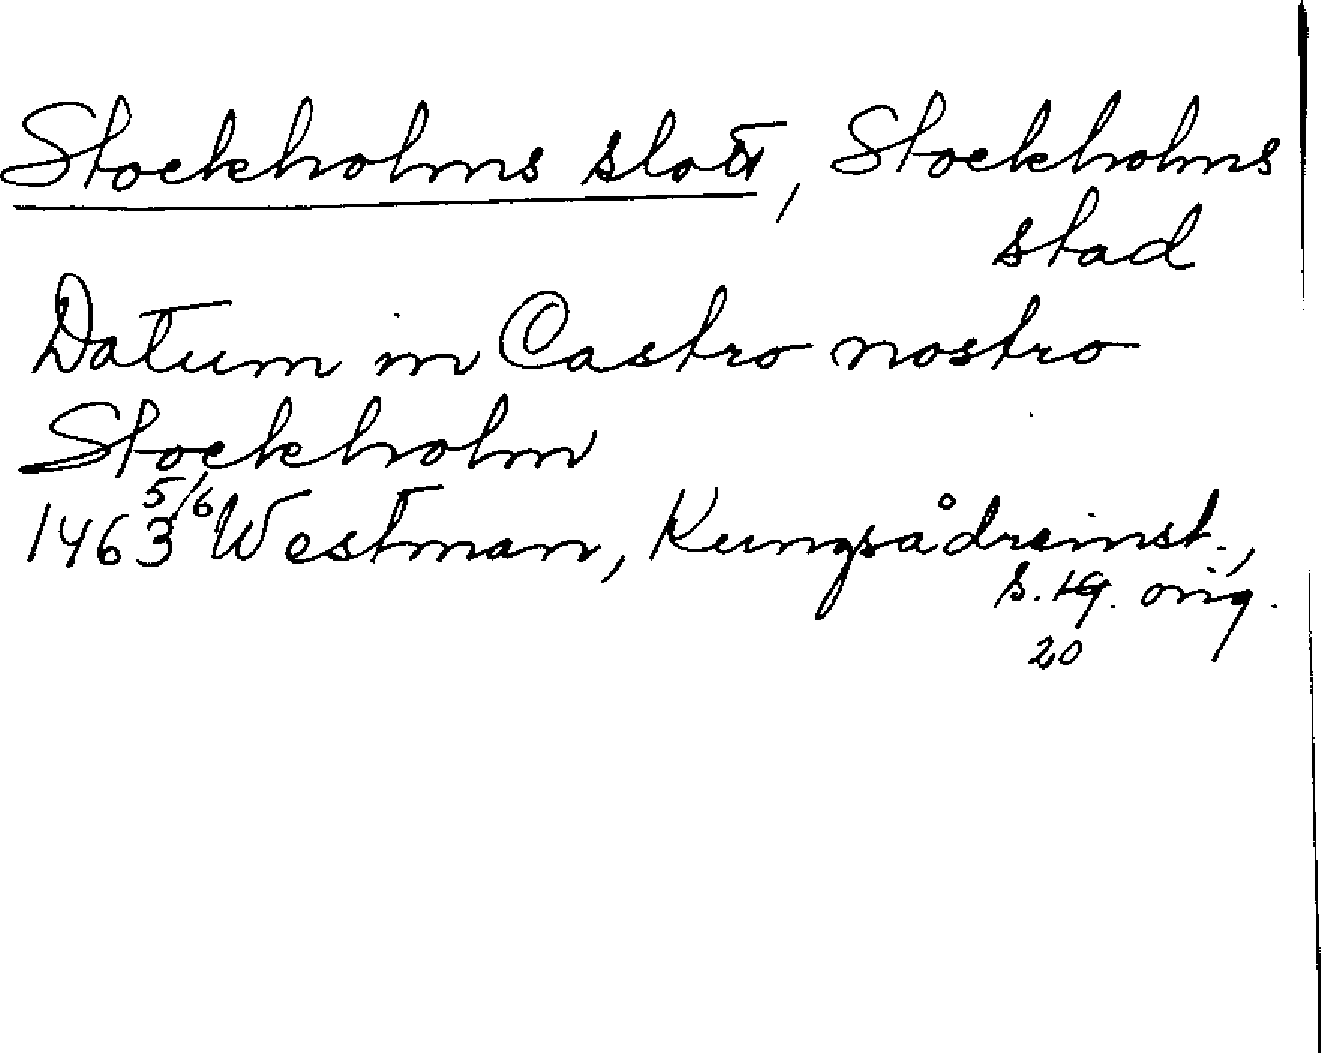 Stockholms slott, Stockholms
stad
Datum in Castro nostro
Stockholm
1463 5/6 Westman, Kungsådreinst.,
s. 19. orig.
20